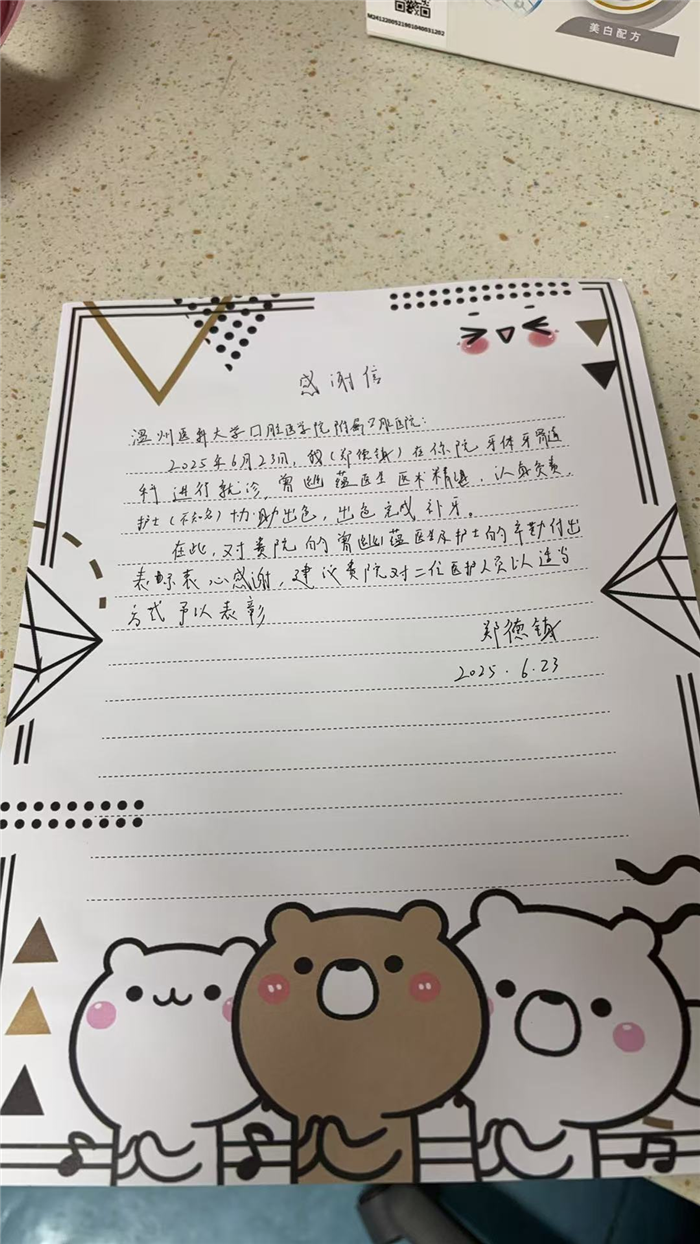 M241220092100104003​1202
美白配方
感谢信
温州医科大学口腔医学院附属口腔医院：
2025年6月23日，我（郑德镇）在你院牙体牙髓
科进行就诊，曾幽蕴医生医术精湛，认真负责，
护士（不知名）协助出色，出色完成补牙。
在此，对贵院的曾幽蕴医生及护士的辛勤付出
表衷心感谢，建议贵院对二位医护人员以适当
方式予以表彰
郑德镇
2025.6.23